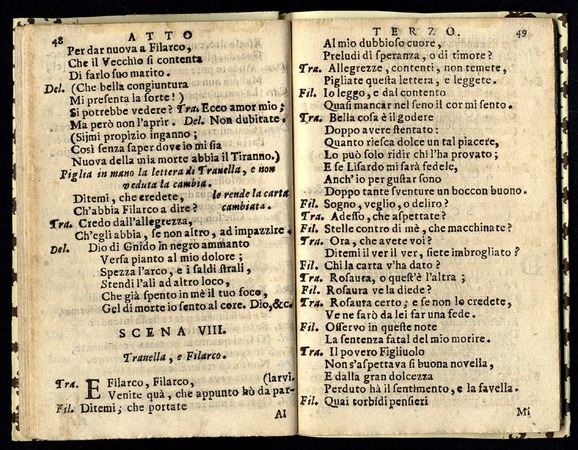 48 ATTO
Per dar nuova a Filarco,
Che il Vecchio si contenta
Di farlo suo marito.
Del. (Che bella congiuntura
Mi presenta la sorte!)
Si potrebbe vedere? Tra. Ecco amor mio;
Ma però non l'aprir. Del. Non dubitate.
(Sijmi propizio inganno;
Così senza saper dove io mi sia
Nuova della mia morte abbia il Tiranno.)
Piglia in mano la lettera di Tranella, e non
veduta la cambia.
Ditemi, che credete, le rende la carta
Ch'abbia Filarco a dire? cambiata.
Tra. Credo dall'allegrezza,
Ch'egli abbia, se non altro, ad impazzire.
Del. Dio di Gnido in negro ammanto
Versa pianto al mio dolore;
Spezza l'arco, e i saldi strali,
Stendi l'ali ad altro loco,
Che già spento in mè il tuo foco,
Gel di morte io sento al core. Dio, &c.
SCENA VIII.
Tranella, e Filarco.
Tra. E Filarco, Filarco, (larvi.
Venite quà, che appunto hò da par-
Fil. Ditemi; che portate
Al
TERZO. 49
Al mio dubbioso cuore,
Preludi di speranza, o di timore?
Tra. Allegrezze, contenti, non temete,
Pigliate questa lettera, e leggete.
Fil. Io leggo, e dal contento
Quasi mancar nel seno il cor mi sento.
Tra. Bella cosa è il godere
Doppo avere stentato:
Quanto riesca dolce un tal piacere,
Lo può solo ridir chi l'ha provato;
E se Lisardo mi sarà fedele,
Anch'io per gustar sono
Doppo tante sventure un boccon buono.
Fil. Sogno, veglio, o deliro?
Tra. Adesso, che aspettate?
Fil. Stelle contro di mè, che macchinate?
Tra. Ora, che avete voi?
Ditemi il ver il ver, siete imbrogliato?
Fil. Chi la carta v'ha dato?
Tra. Rosaura, o quest'è l'altra;
Fil. Rosaura ve la diede?
Tra. Rosaura certo; e se non lo credete,
Ve ne farò da lei far una fede.
Fil. Osservo in queste note
La sentenza fatal del mio morire.
Tra. Il povero Figliuolo
Non s'aspettava sì buona novella,
E dalla gran dolcezza
Perduto hà il sentimento, e la favella.
Fil. Quai torbidi pensieri
Mi